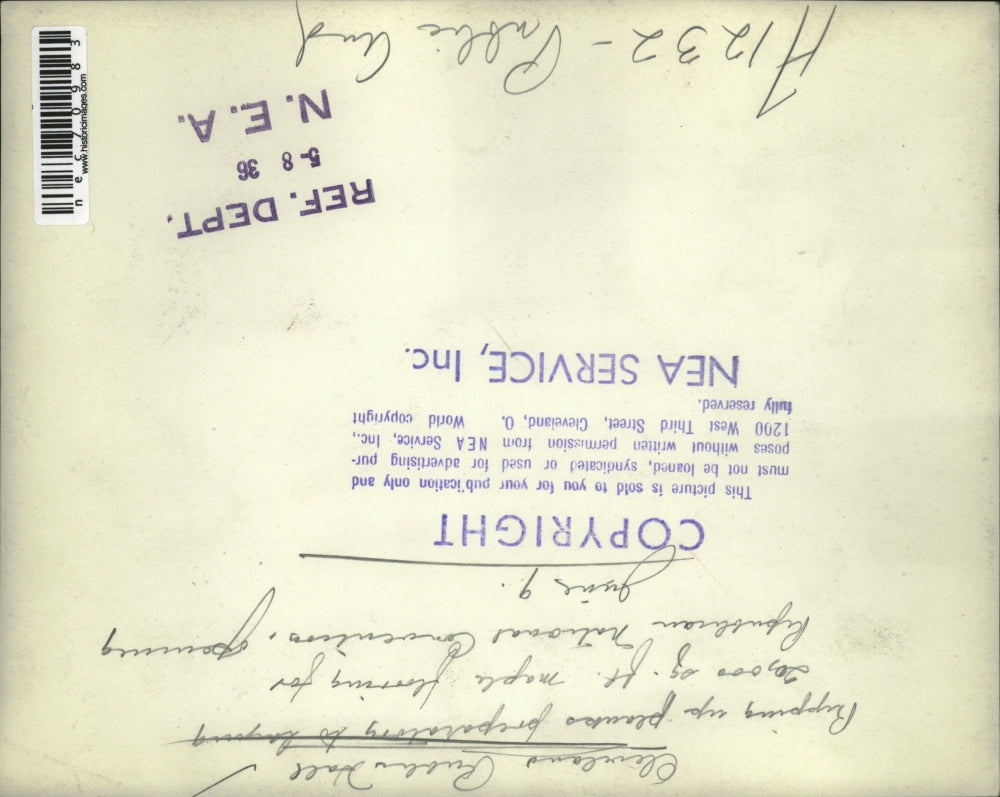 Cleveland Public Hall
Ripping up planks preparatory to laying
20,000 sq. ft. maple flooring for
Republican National Convention, opening
June 9.
COPYRIGHT
This picture is sold to you for your publication only and
must not be loaned, syndicated or used for advertising pur-
poses without written permission from NEA Service, Inc.,
1200 West Third Street, Cleveland, O. World copyright
fully reserved.
NEA SERVICE, Inc.
REF. DEPT.
5-8 36
N. E. A.
H1232 - Public Aud
nec70983
www.historicimages.com